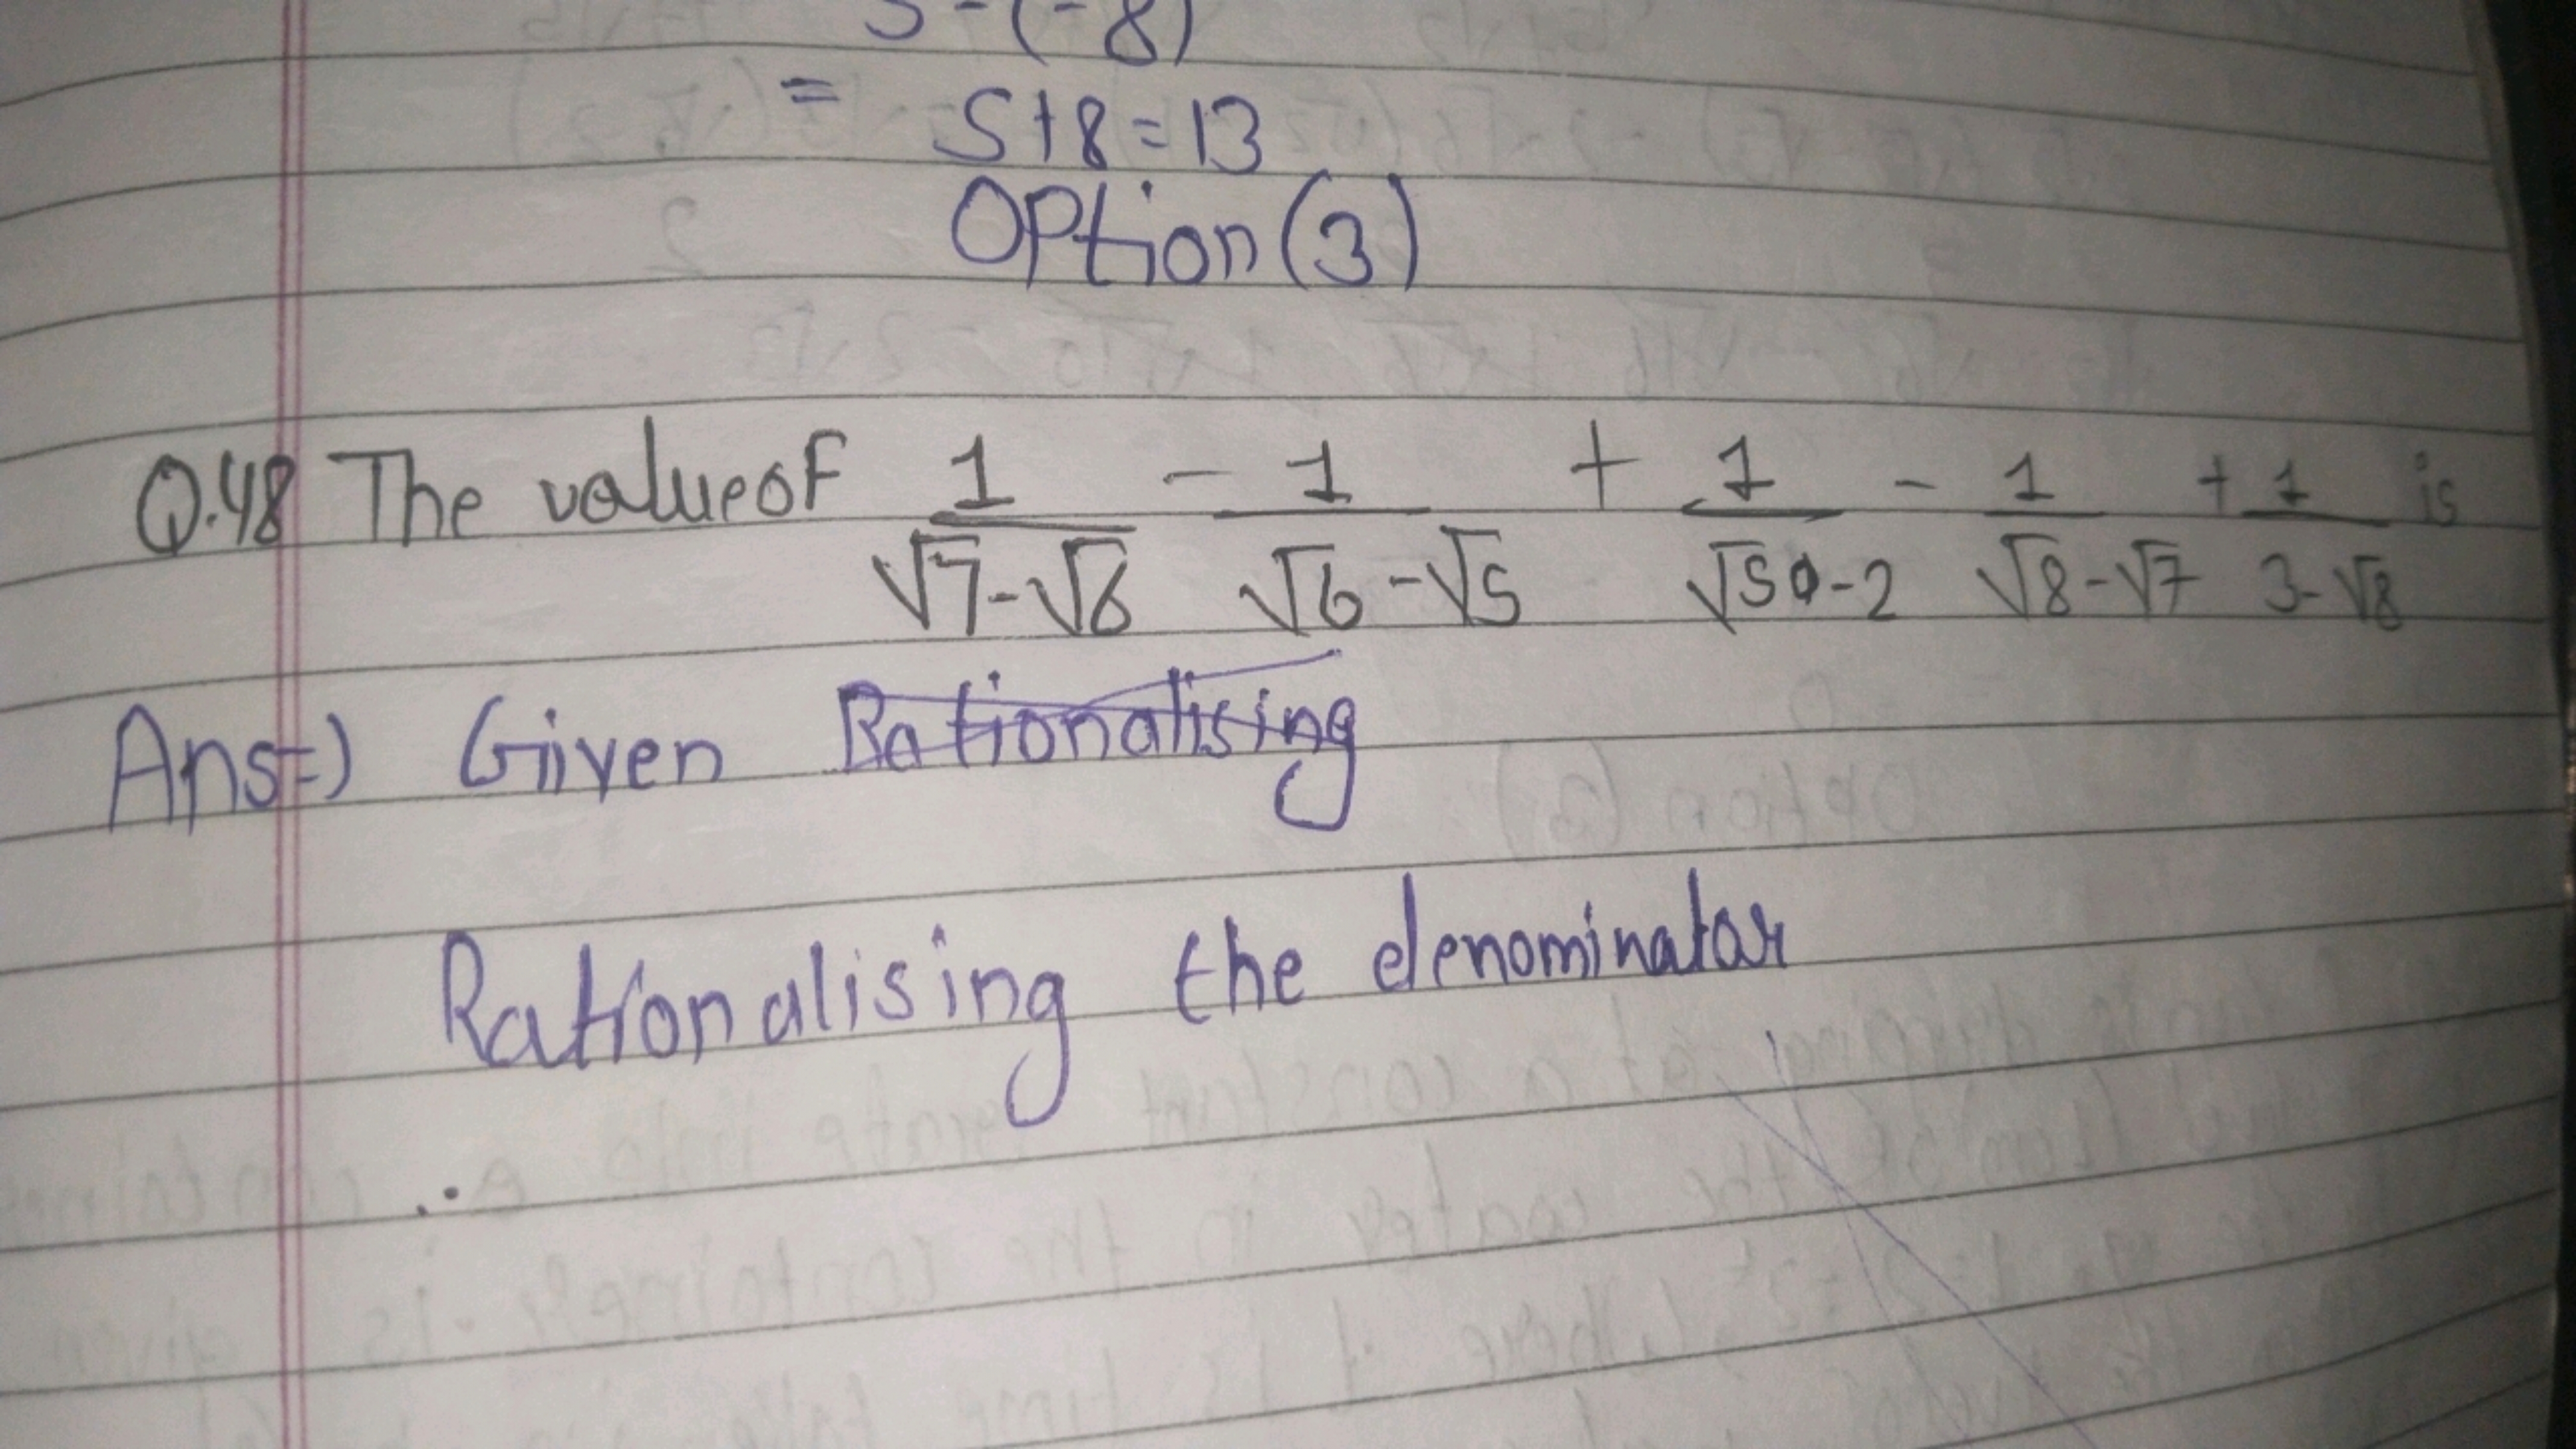 5-(-8)
= 5+8=13
Option (3)
Q.48 The value of 1/(√7-√6) - 1/(√6-√5) + 1/(√5-2) - 1/(√8-√7) + 1/(3-√8) is
Ans=) Given Rationalising
Rationalising the denominator